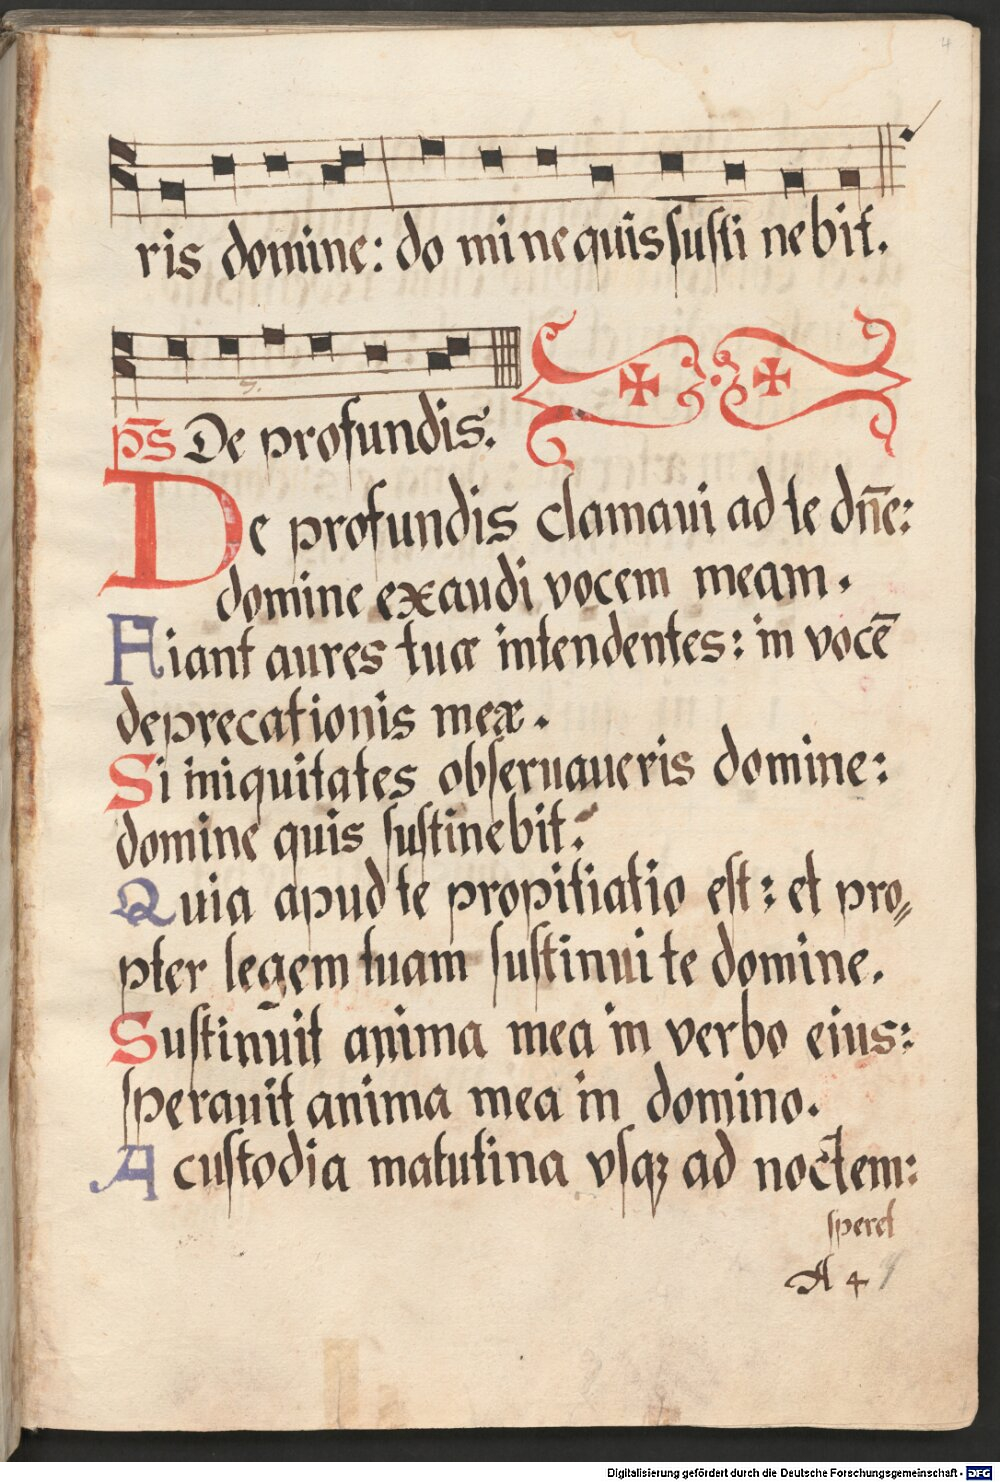 4
ris domine: do mi ne quis susti nebit.
ps̄ De profundis.
De profundis clamaui ad te dn̄e:
domine exaudi vocem meam.
Fiant aures tuæ intendentes: in vocē
deprecationis meæ.
Si iniquitates obseruaueris domine:
domine quis sustinebit.
Quia apud te propitiatio est: et pro⸗
pter legem tuam sustinui te domine.
Sustinuit anima mea in verbo eius:
sperauit anima mea in domino.
A custodia matutina vsqꝫ ad noctem:
speret
A 4
Digitalisierung gefördert durch die Deutsche Forschungsgemeinschaft - DFG